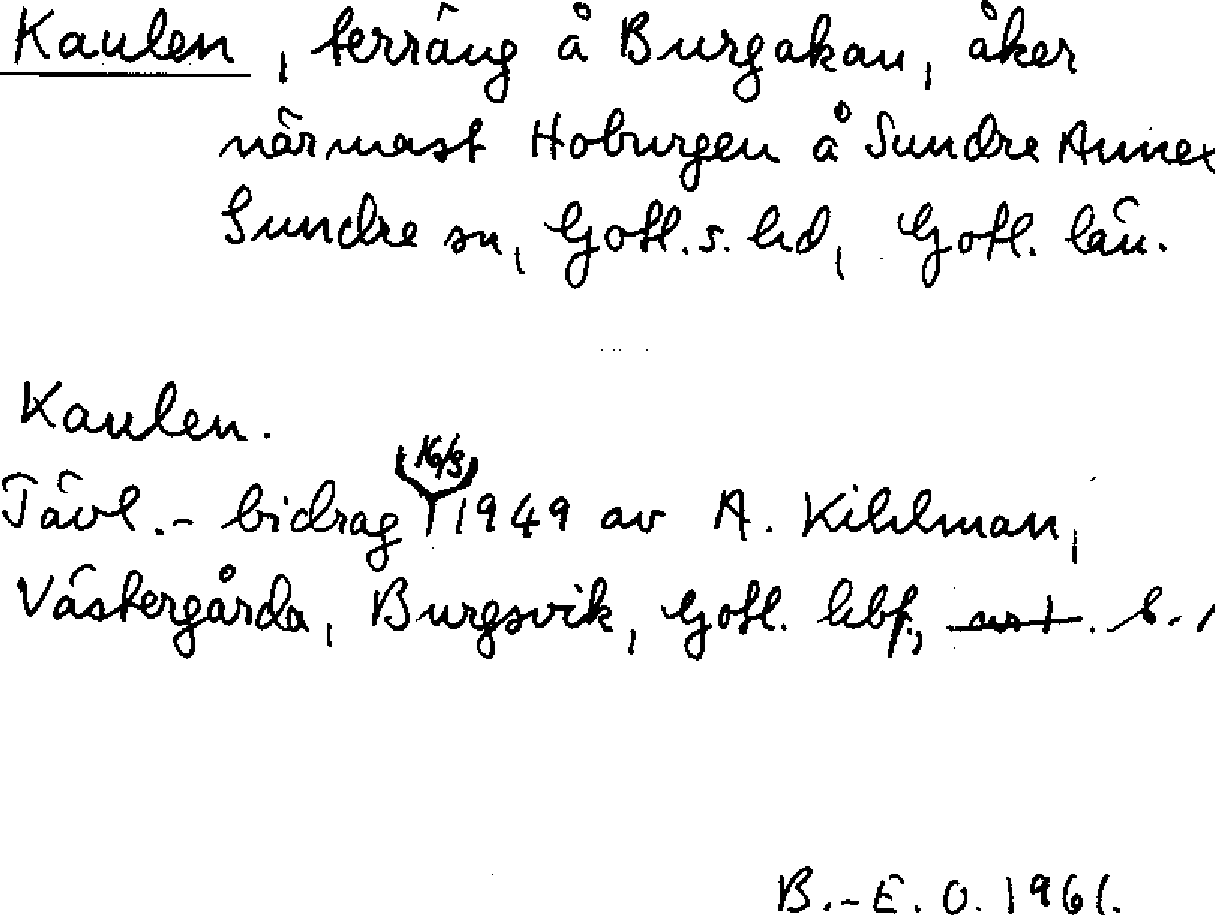 Kaulen, terräng å Burgakau, åker
närmast Hoburgen å Sundre Annex
Sundre sn, Gotl. s. hd, Gotl. län.
Kaulen.
16/3
Tävl.- bidrag 1949 av A. Kihlman,
Västergårda, Burgsvik, Gotl. kbf.,
B.-E. O. 1961.